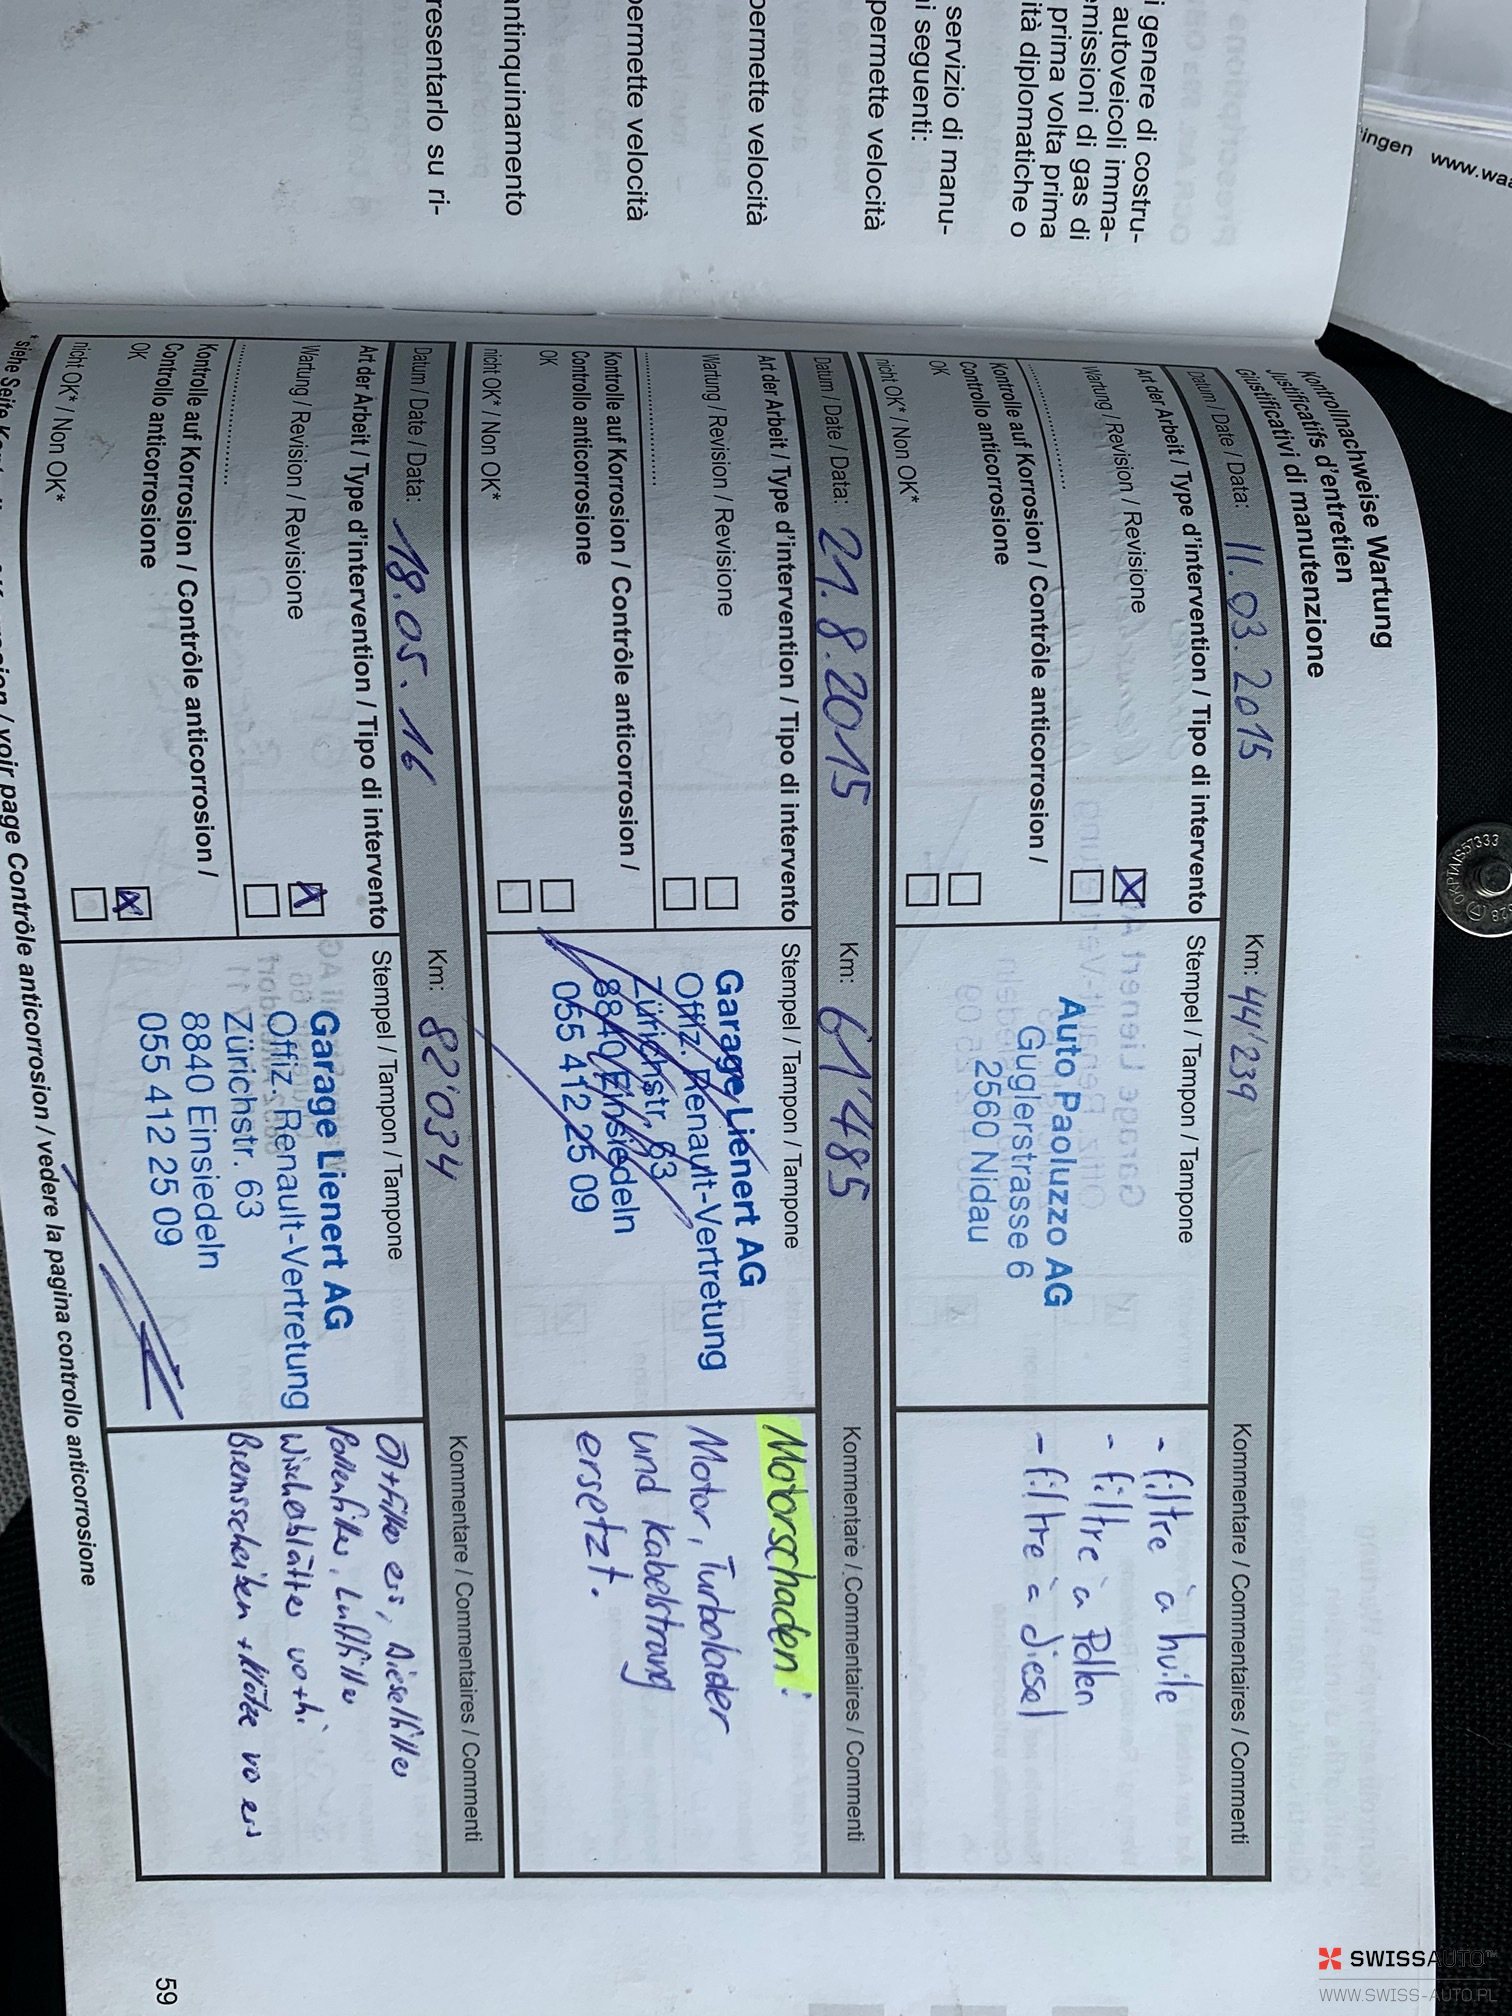 i genere di costru-
autoveicoli imma-
emissioni di gas di
prima volta prima
ità diplomatiche o
servizio di manu-
i seguenti:
permette velocità
permette velocità
permette velocità
antinquinamento
resentarlo su ri-
ingen www.waa
Kontrollnachweise Wartung
Justificatifs d'entretien
Giustificativi di manutenzione
Datum / Date / Data: 11.03.2015 Km: 44'239 Kommentare / Commentaires / Commenti
Art der Arbeit / Type d'intervention / Tipo di intervento
Wartung / Revision / Revisione
Kontrolle auf Korrosion / Contrôle anticorrosion /
Controllo anticorrosione
OK
nicht OK* / Non OK*
Stempel / Tampon / Tampone
Auto Paoluzzo AG
Guglerstrasse 6
2560 Nidau
- filtre à huile
- filtre à Pollen
- filtre à diesel
Datum / Date / Data: 21.8.2015 Km: 61'485 Kommentare / Commentaires / Commenti
Art der Arbeit / Type d'intervention / Tipo di intervento
Wartung / Revision / Revisione
Kontrolle auf Korrosion / Contrôle anticorrosion /
Controllo anticorrosione
OK
nicht OK* / Non OK*
Stempel / Tampon / Tampone
Garage Lienert AG
Offiz. Renault-Vertretung
Zürichstr. 63
8840 Einsiedeln
055 412 25 09
Motorschaden:
Motor, Turbolader
und Kabelstrang
ersetzt.
Datum / Date / Data: 18.05.16 Km: 82'034 Kommentare / Commentaires / Commenti
Art der Arbeit / Type d'intervention / Tipo di intervento
Wartung / Revision / Revisione
Kontrolle auf Korrosion / Contrôle anticorrosion /
Controllo anticorrosione
OK
nicht OK* / Non OK*
Stempel / Tampon / Tampone
Garage Lienert AG
Offiz. Renault-Vertretung
Zürichstr. 63
8840 Einsiedeln
055 412 25 09
Öl+Filter ers, Dieselfilter
Pollenfilter, Luftfilter
Wischerblätter vo+hi
Bremsscheiben + Klötze vo ers
voir page Contrôle anticorrosion / vedere la pagina controllo anticorrosione
59
SWISSAUTO
WWW.SWISS-AUTO.PL